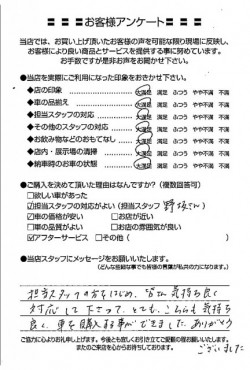 お客様アンケート
当店では、お買い上げ頂いたお客様の声を可能な限り現場に反映し、
お客様により良い商品とサービスを提供する事に努めています。
お手数ですが是非お声をお聞かせ下さい。
●当店を実際にご利用になった印象をおきかせ下さい。
◆店の印象 大満足 満足 ふつう やや不満 不満
◆車の品揃え 大満足 満足 ふつう やや不満 不満
◆担当スタッフの対応 大満足 満足 ふつう やや不満 不満
◆その他のスタッフの対応 大満足 満足 ふつう やや不満 不満
◆お飲み物などのおもてなし 大満足 満足 ふつう やや不満 不満
◆店内・展示場の清掃 大満足 満足 ふつう やや不満 不満
◆納車時のお車の状態 大満足 満足 ふつう やや不満 不満
●ご購入を決めて頂いた理由はなんですか？（複数回答可）
□欲しい車があった
☑担当スタッフの対応がよい（担当スタッフ 野坂さん）
☑車の価格が安い □お店が近い
□車の品質がよい □お店の雰囲気が良い
☑アフターサービス □その他（ ）
●当店スタッフにメッセージをお願いいたします。
（どんな些細な事でも皆様の言葉が私共の力になります）
担当スタッフの方をはじめ、皆さん気持ち良く
対応して下さって、とても、こちらも気持ち
良く、車を購入する事ができました。ありがとう
ございました
ご協力に心よりお礼申し上げます。今後とも宜しくお引き立てご愛顧の程お願いいたします。
またのご来店を心からお待ちしております。